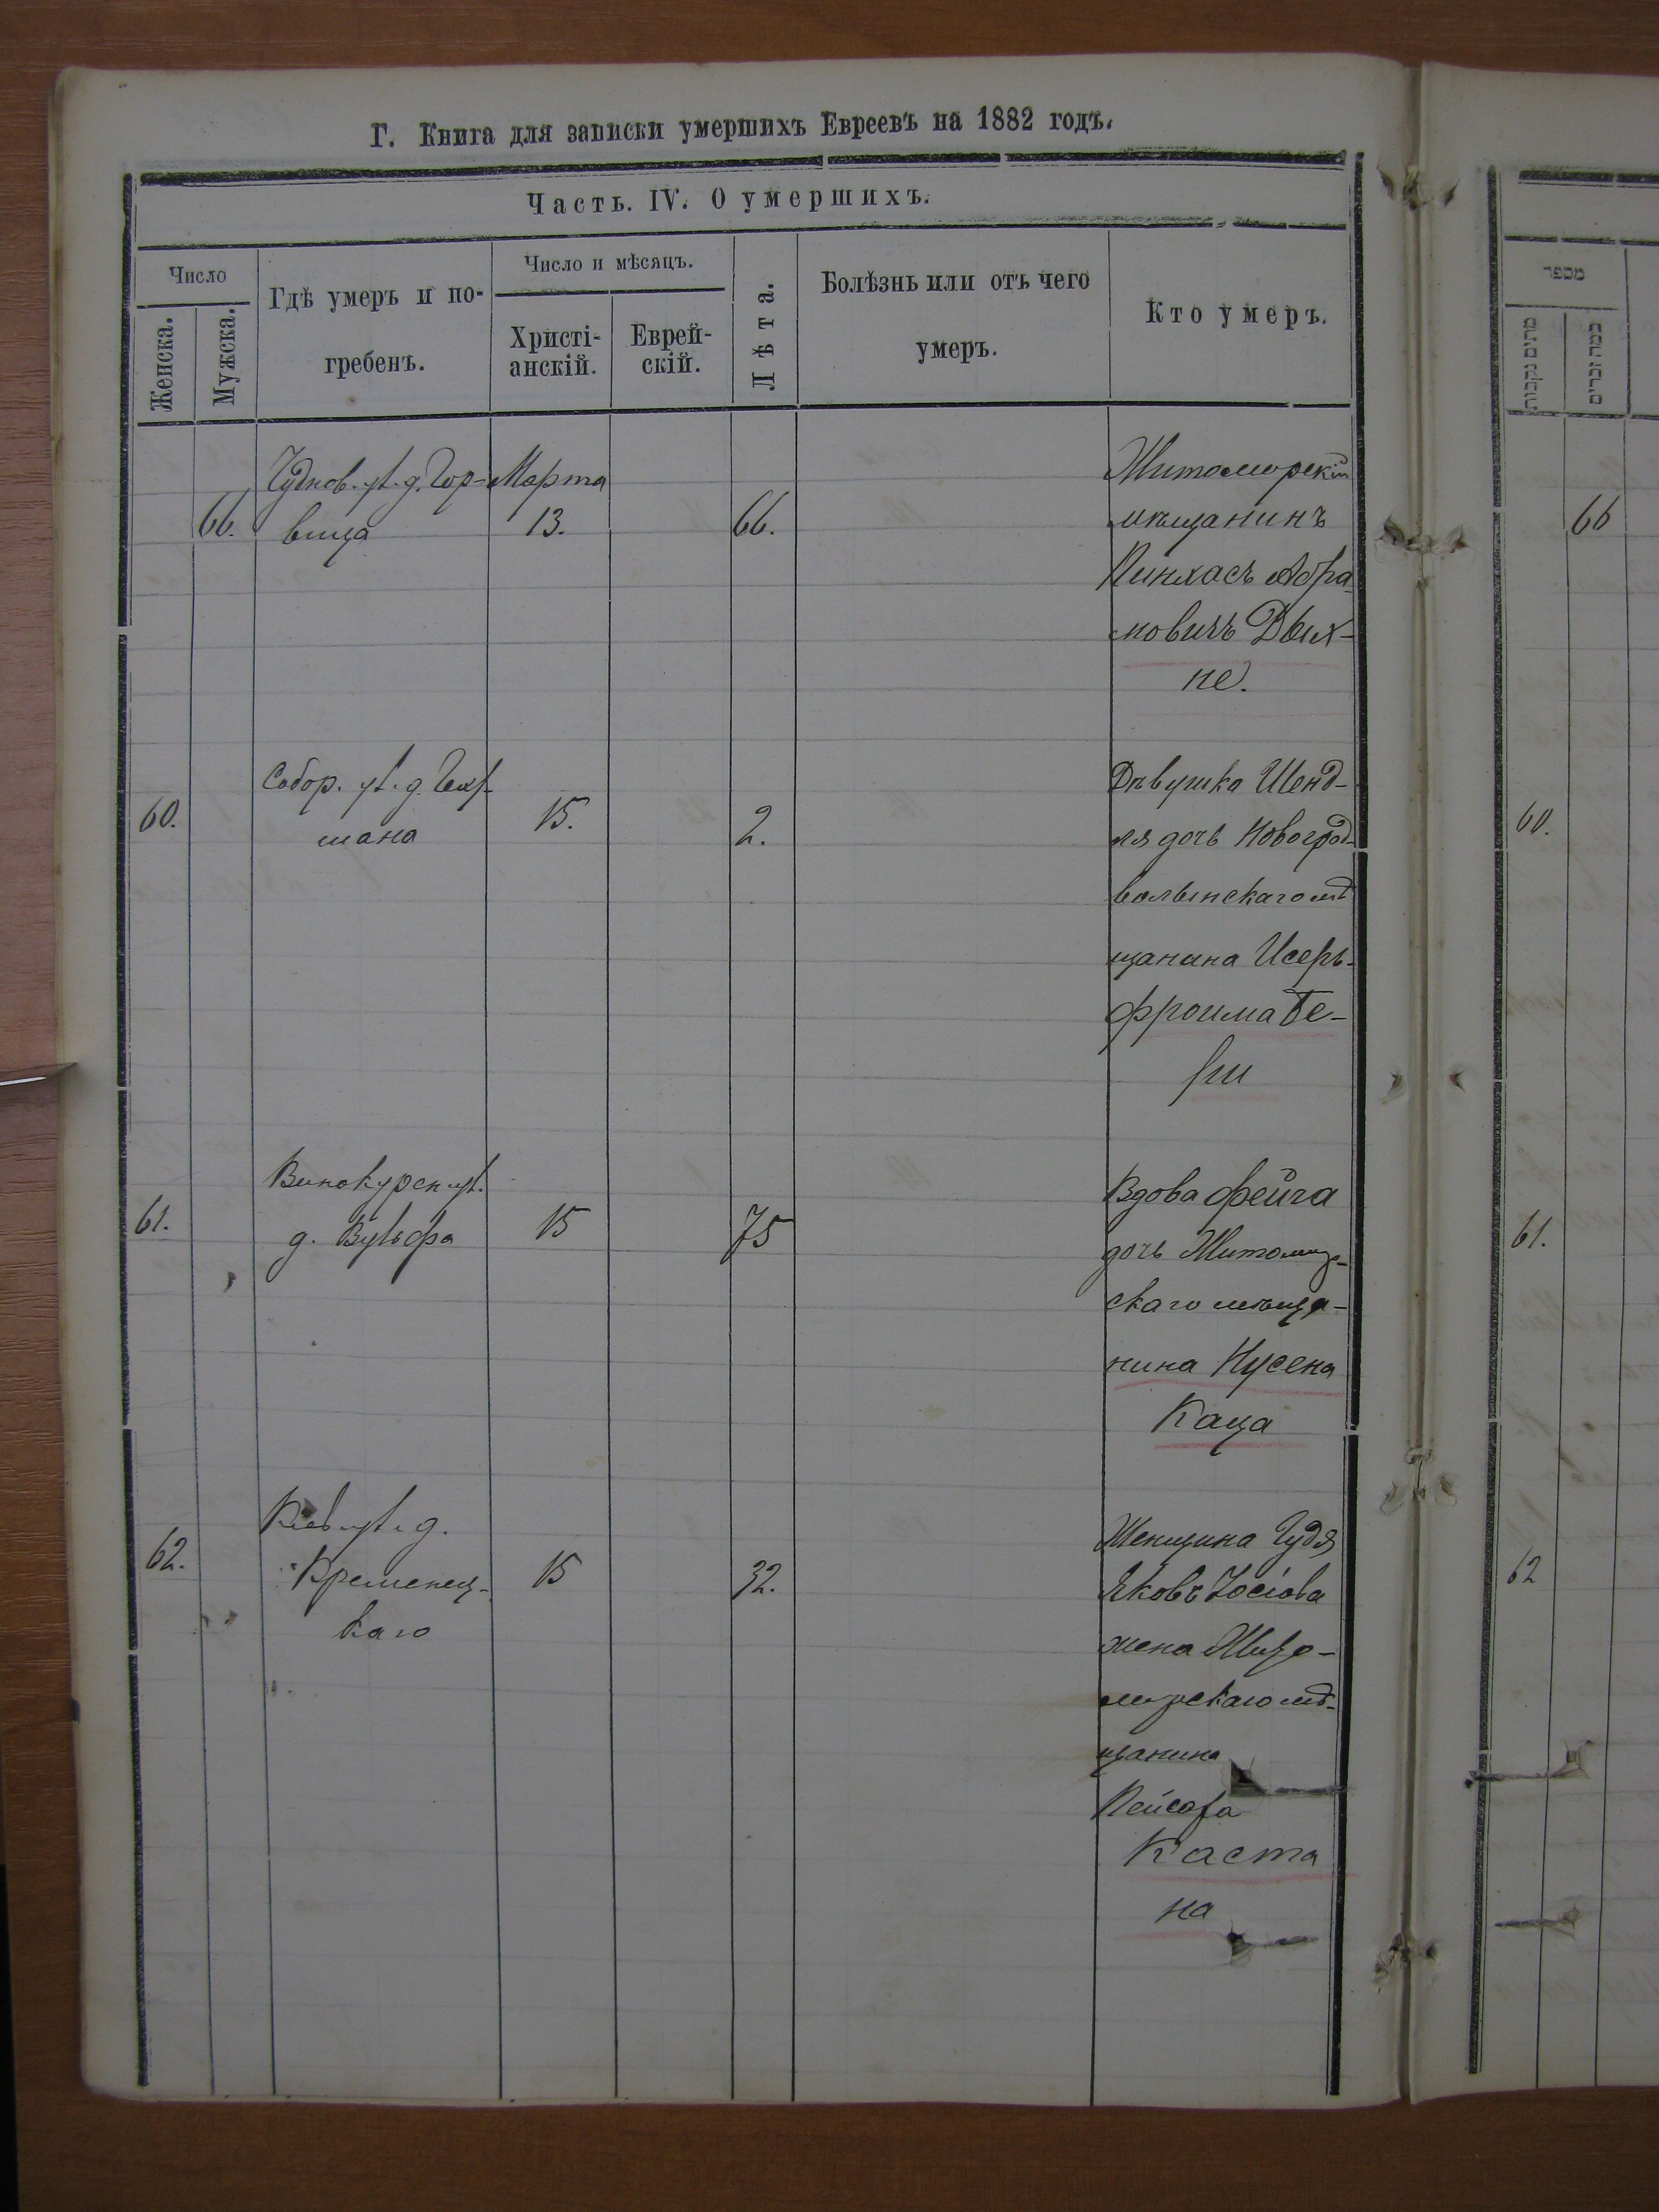 Г. Книга для записки умершихъ Евреевъ на 1882 годъ.
Часть. IV. О умершихъ.
Число
Женска.
Мужска.
Гдѣ умеръ и по-
гребенъ.
Число и мѣсяцъ.
Христі-
анскій.
Еврей-
скій.
Лѣта.
Болѣзнь или отъ чего
умеръ.
Кто умеръ.
66.
Чуднов. ул. д. Гор-
вица
Марта
13.
66.
Житомирскій
мѣщанинъ
Пинхасъ Абра
мовичъ
не.
60.
Собор. ул. д.
мана
15.
2.
Дѣвушка Шенд-
ля дочь Новоград
волынскаго мѣ
щанина Исеръ-
Фроима Бе-
61.
Винокурен ул.
д. Вульфа
15
75
Вдова Фейга
дочь Житомир-
скаго мѣща-
нина Нусена
Каца
62.
Кіев ул. д.
Кременец-
каго
15
32.
Женщина Гудя
Яковъ Іосіова
жена Жито-
мирскаго мѣ-
щанина
Пейсаха
Каста
на
מספר
מתים נקבות
כמה זכרים
66
60.
61.
62